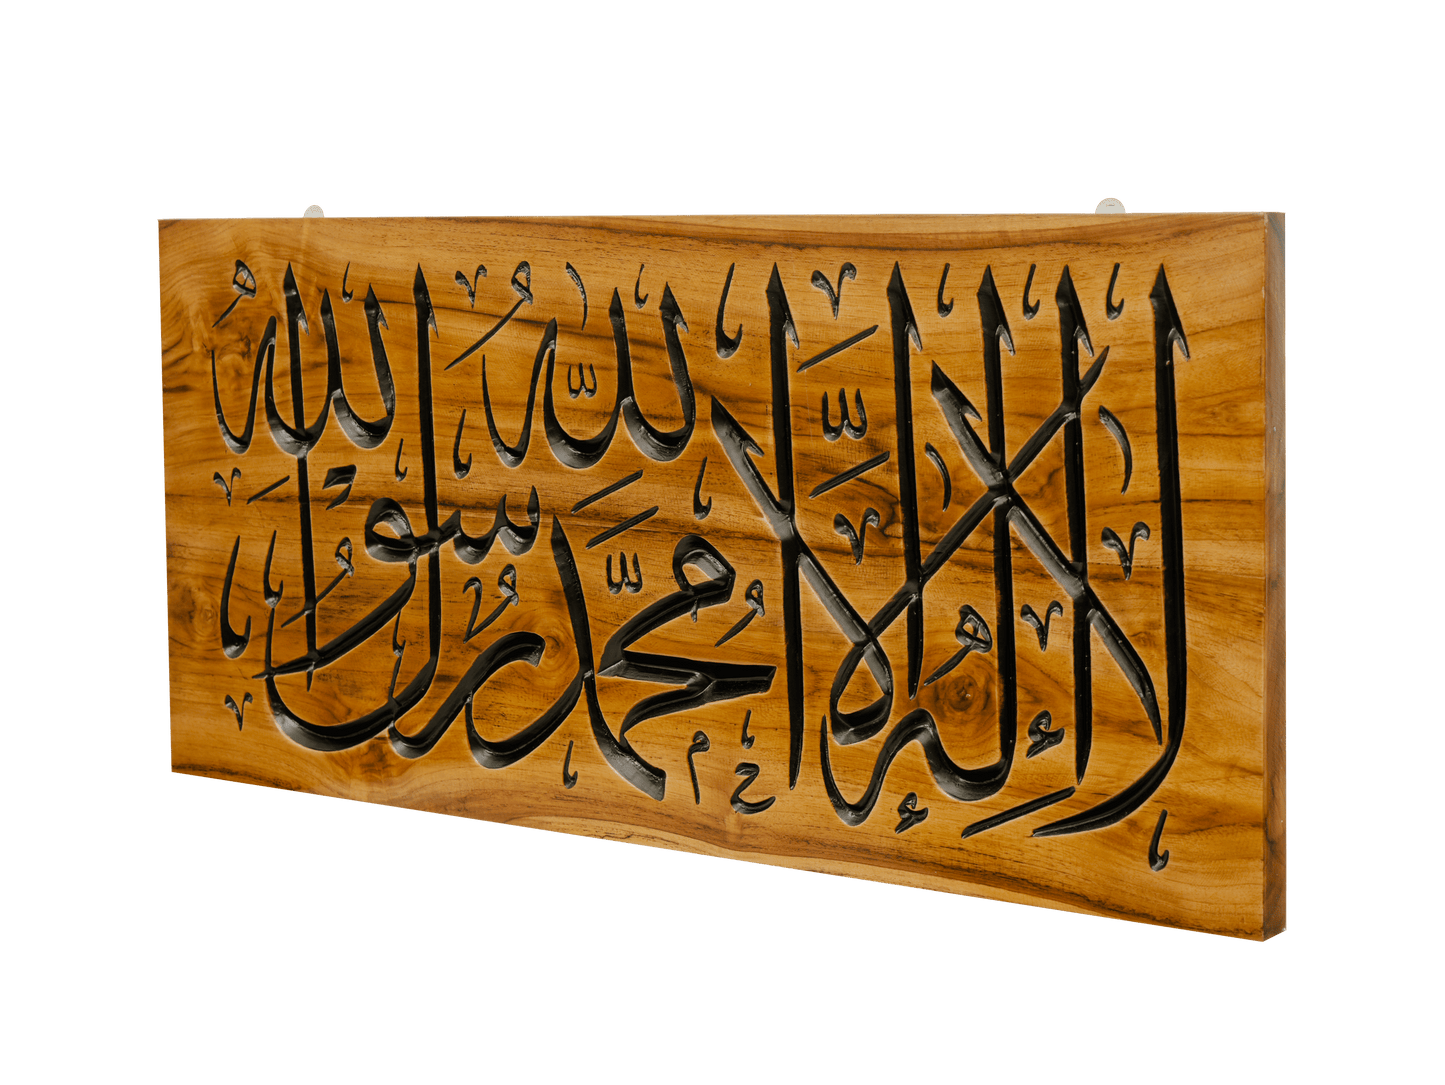 لَا إِلٰهَ إِلَّا اللّٰهُ مُحَمَّدٌ رَسُوْلُ اللهِ